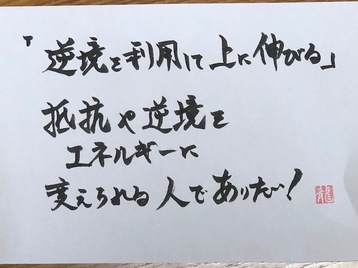 「逆境を利用して上に伸びる」
抵抗や逆境を
エネルギーに
変えられる人でありたい!